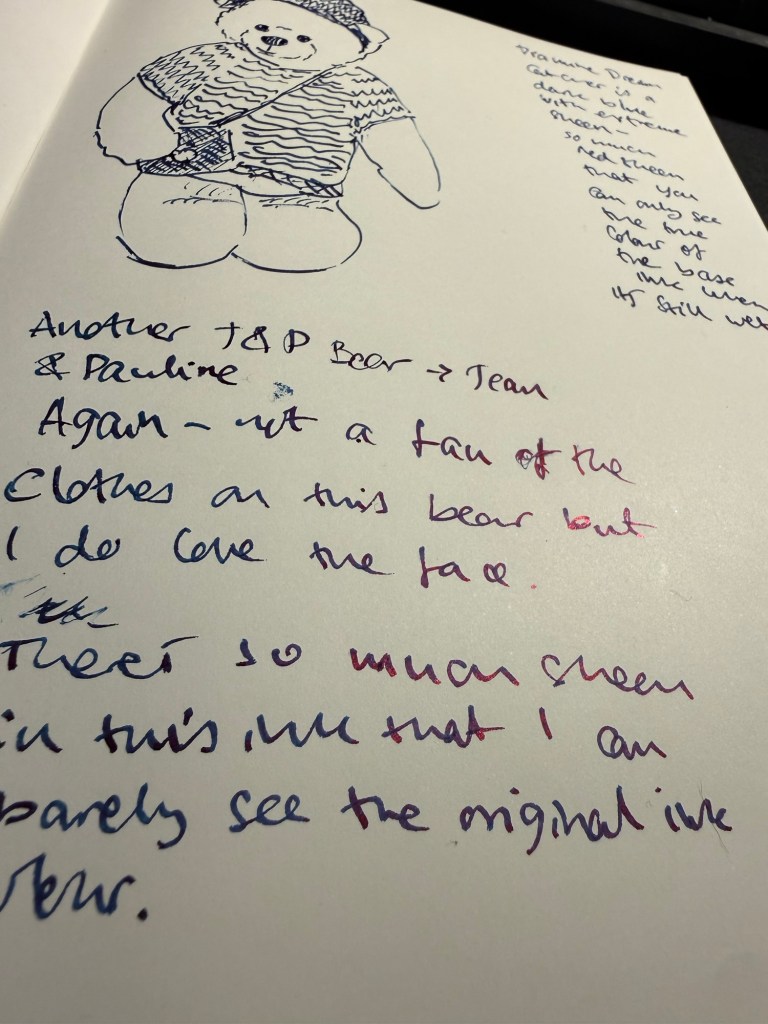 Diamine Dream
Catcher is a
dark blue
with extreme
sheen -
so much
red sheen
that you
can only see
the true
colour of
the base
ink when
it's still wet
Another J & P Bear → Jean
& Pauline
Again - not a fan of the
clothes on this bear but
I do love the face.
There's so much sheen
in this ink that I can
barely see the original ink